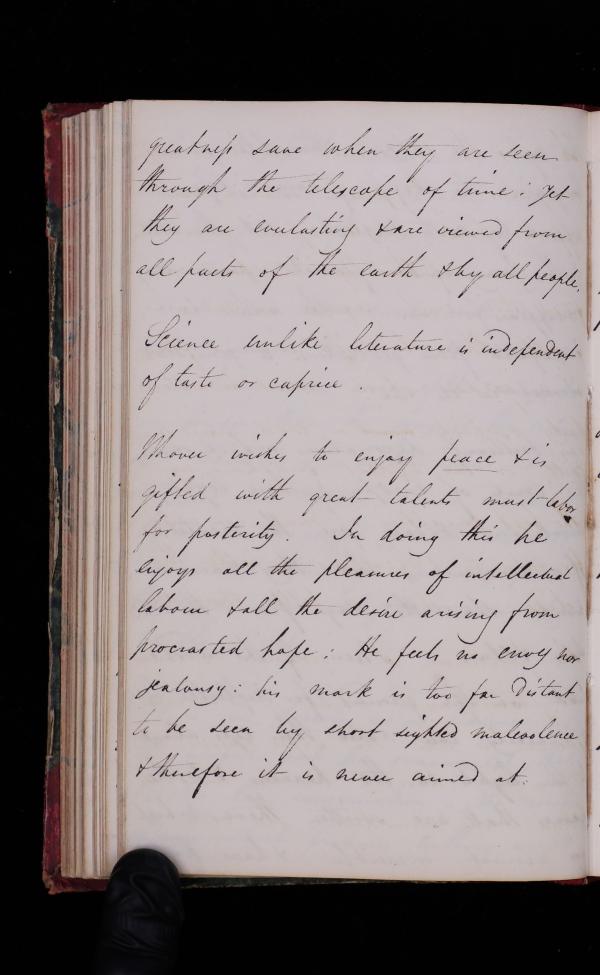 greatness save when they are seen
through the telescope of time: yet
they are everlasting & are viewed from
all parts of the earth & by all people.
Science unlike literature is independent
of taste or caprice.
Whoever wishes to enjoy peace & is
gifted with great talents must labor
for posterity. In doing this he
enjoys all the pleasures of intellectual
labour & all the desire arising from
procrasted hope: He feels no envy nor
jealousy: his mark is too far distant
to be seen by short sighted malevolence
& therefore it is never aimed at.